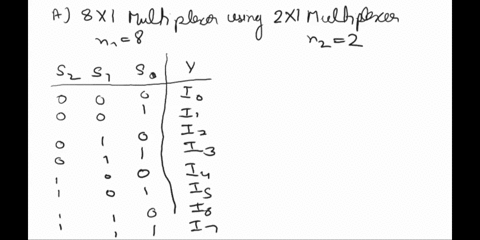 A) 8X1 Multiplexer using 2X1 Multiplexer
n₁=8 n₂=2
S₂ S₁ S₀ Y
0 0 0 I₀
0 0 1 I₁
0 1 0 I₂
0 1 1 I₃
1 0 0 I₄
1 0 1 I₅
1 1 0 I₆
1 1 1 I₇